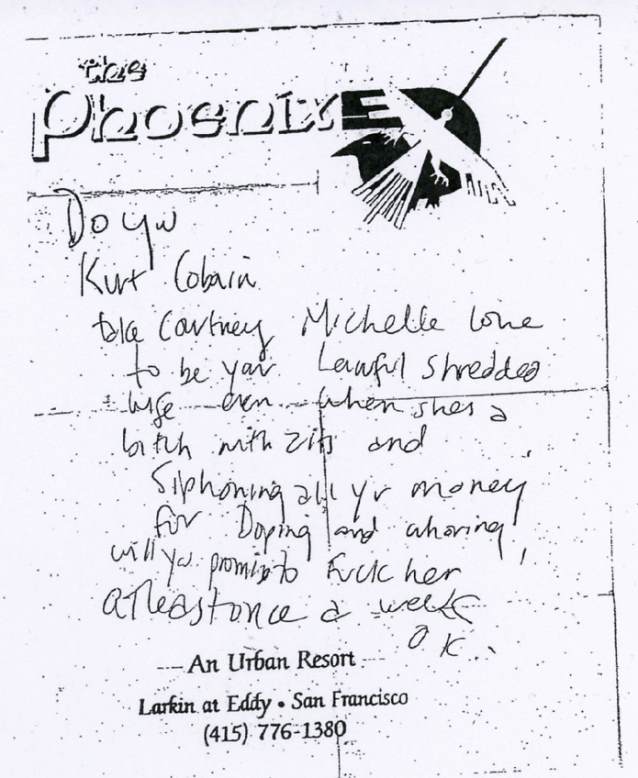 the
Phoenix
Do you
Kurt Cobain
take Courtney Michelle Love
to be your Lawful shredded
wife even when shes a
bitch with zits and
siphoning all yr money
for Doping and whoring
will you promise to Fuck her
atleast once a week
OK..
An Urban Resort
Larkin at Eddy • San Francisco
(415) 776-1380